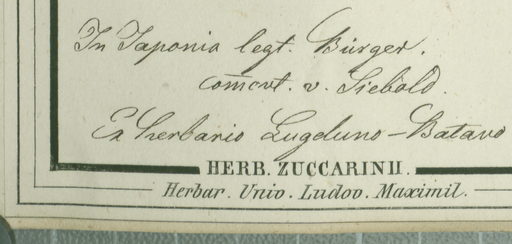 In Japonia legt. Bürger.
com̅ct. v. Siebold.
Ex herbario Lugduno-Batavo
HERB. ZUCCARINII.
Herbar. Univ. Ludov. Maximil.